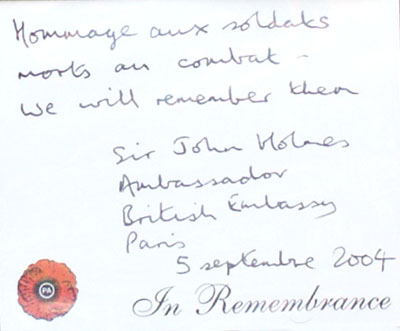 Hommage aux soldats
morts au combat -
We will remember them
Sir John Holmes
Ambassador
British Embassy
Paris
5 septembre 2004
PA
In Remembrance